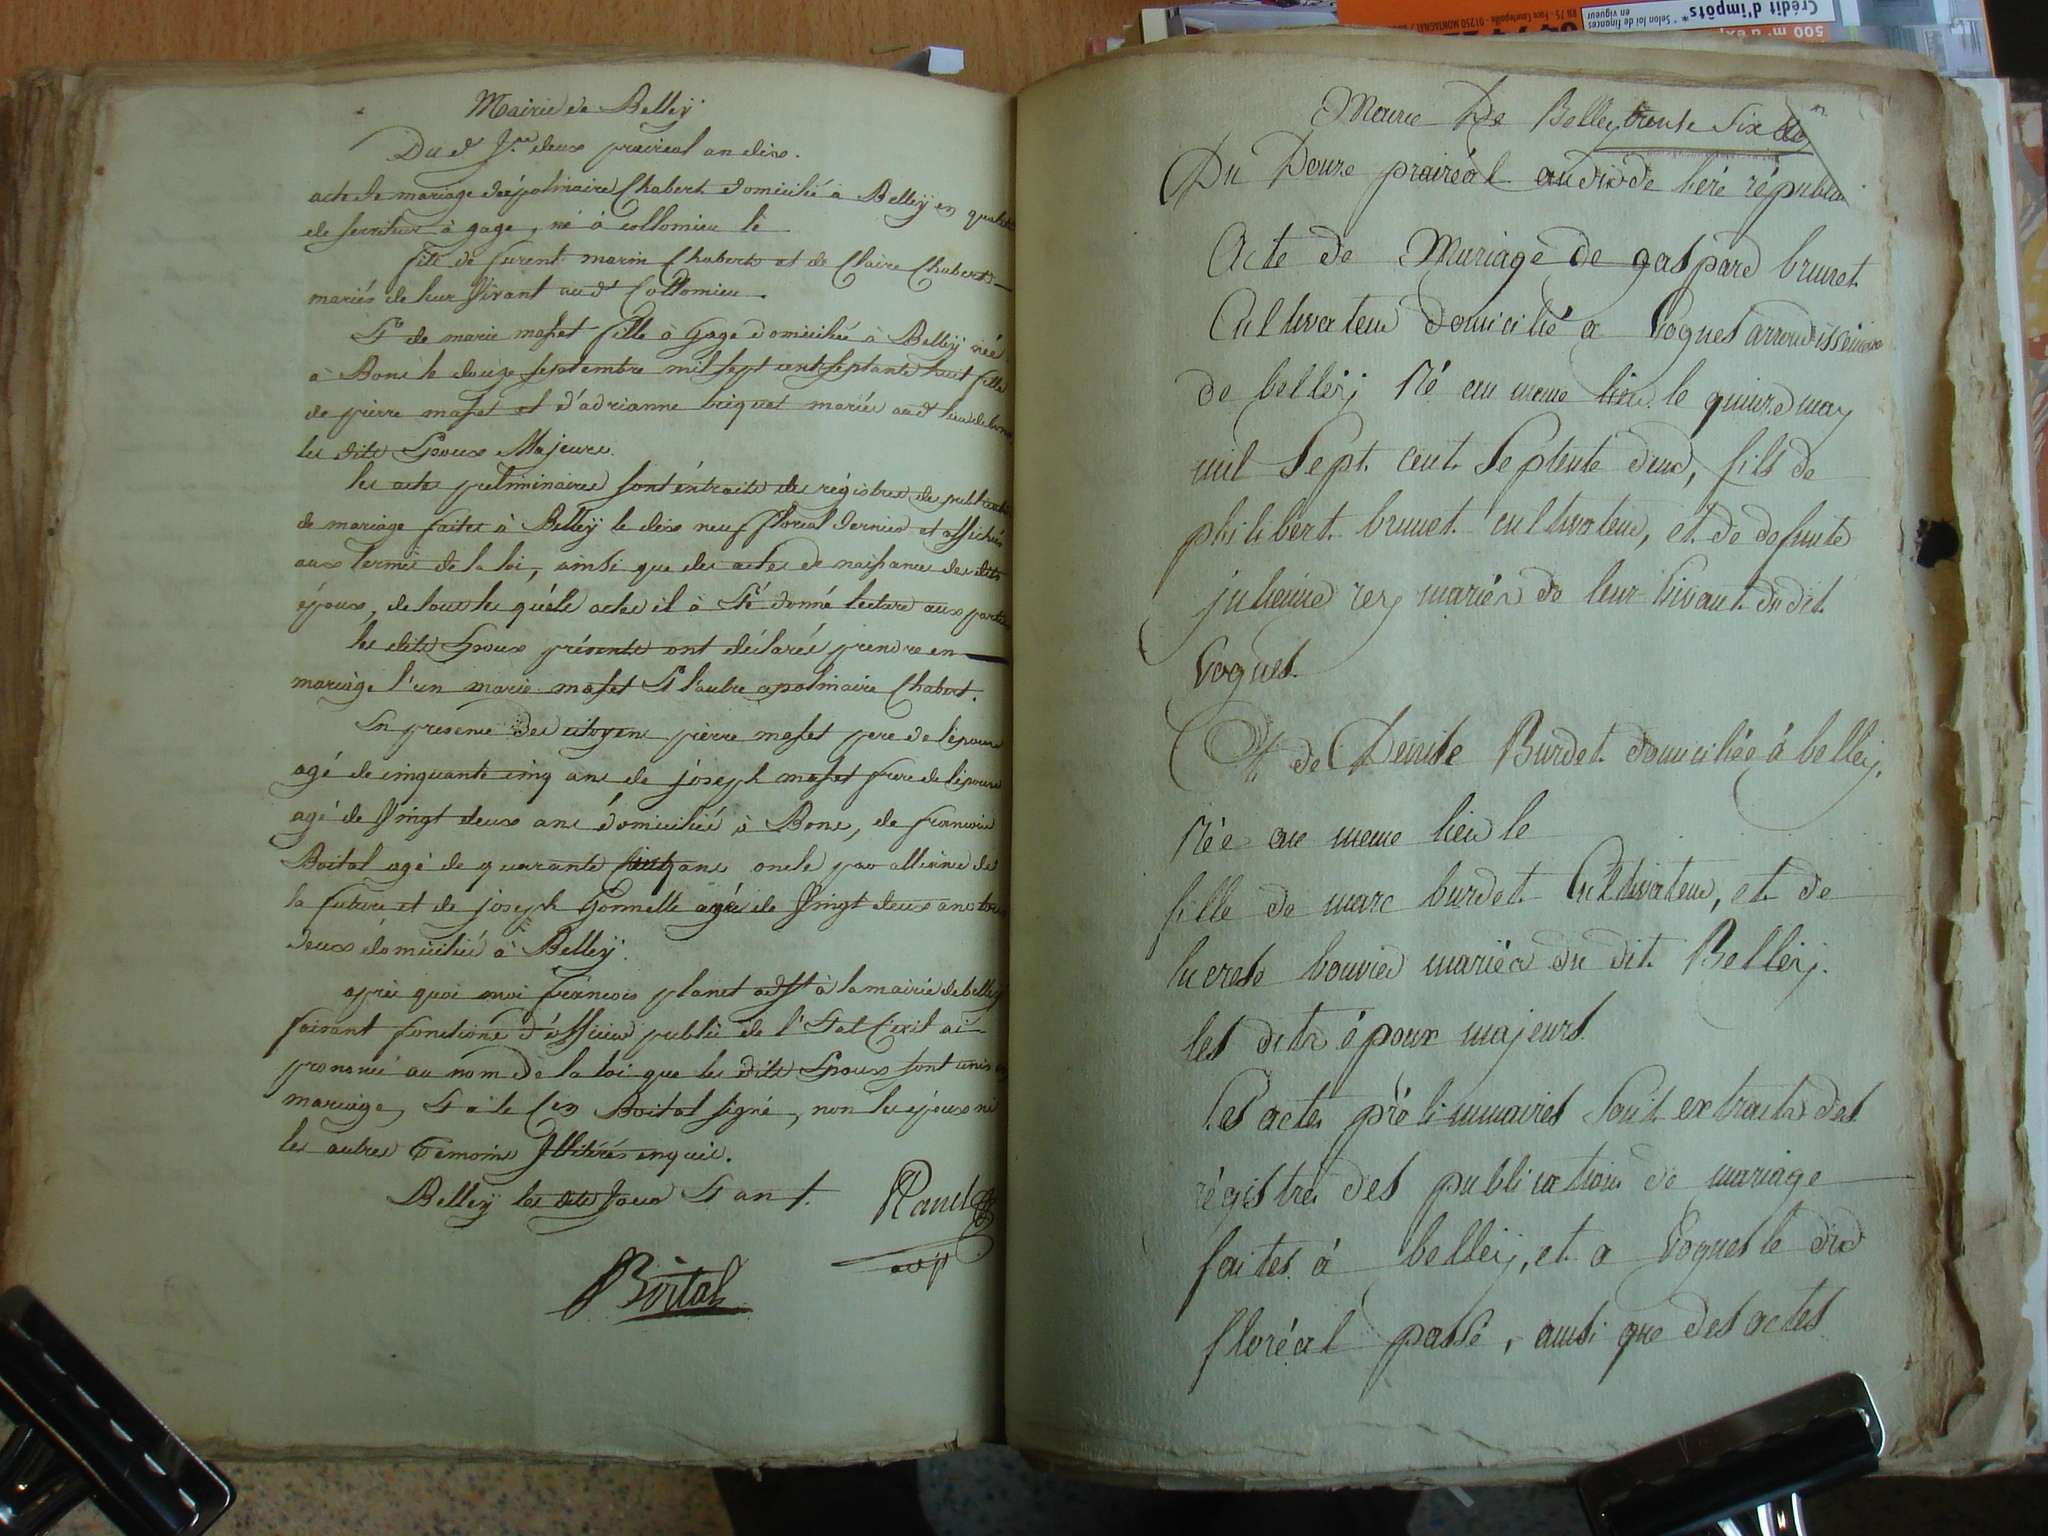 Mairie de Belleÿ
Du d. J.re deux prairial an dix.
acte de mariage d'apolinaire Chabert domicilié à Belleÿ en qualité
de serviteur à gage, né à collomieu le
fils de furent marin Chabert et de Claire Chabert
mariés de leur vivant aud.t Collomieu.
Et de marie masset fille à gage domiciliée à Belleÿ née
à Bons le douze septembre mil sept cent septante huit fille
de pierre masset et d'adrianne briquet mariés aud.t lieu de bons
les dits Epoux Majeurs.
les actes preliminaires sont éxtraits des régistres de publications
de mariage faites à Belleÿ le dix neuf floreal dernier et affichés
aux termes de la loi, ainsi que des actes de naissance des dits
époux, de tous les quéls actes il à Eté donné lecture aux parties
les dits Epoux présents ont déclarés prendre en
mariage l'un marie masset Et l'autre apolinaire Chabert.
En presence des citoyens pierre masset pere de l'epouse
agé de cinquante cinq ans de joseph masset frere de l'epouse
agé de Vingt deux ans domicilié à Bons, de francois
Boital agé de quarante ans oncle par alliance de
la future et de joseph Gonnelle agé de Vingt deux ans tous
deux domicilié à Belleÿ.
après quoi moi francois planet adj.t à la mairie de belleÿ
faisant fonctions d'officier public de l'Etat Civil ai
prononcé au nom de la loi que les dits Epoux sont unis en
mariage, Et à le C.en Boital signé, non les époux ni
les autres temoins Illitérés enquis.
Belleÿ les dits Jour Et an.
adj.t
Boital
Mairie De Belley trente Six
Du Douze prairéal an dix de l'ere républic
Acte de Mariage de gaspard brunet
Cultivateur domicilié a Vognes arrondissément
de belleÿ Né au meme lieu le quinze may
mil Sept cent Septente deux, fils de
philibert brunet cultivateur, et de defunte
julienne rey mariés de leur vivant du dit
Vognes.
Et de Denise Burdet domiciliée à belleÿ,
Née au meme lieu le
fille de marc burdet Cultivateur, et de
lucresse bouvier mariés du dit Belleÿ.
les dits époux majeurs.
Les actes préliminaires Sont extraits des
régistres des publications de mariage
faites à belleÿ, et a Vognes le dix
floréal passé, ainsi que des actes
Crédit d'impôts
* Selon loi de finances
en vigueur